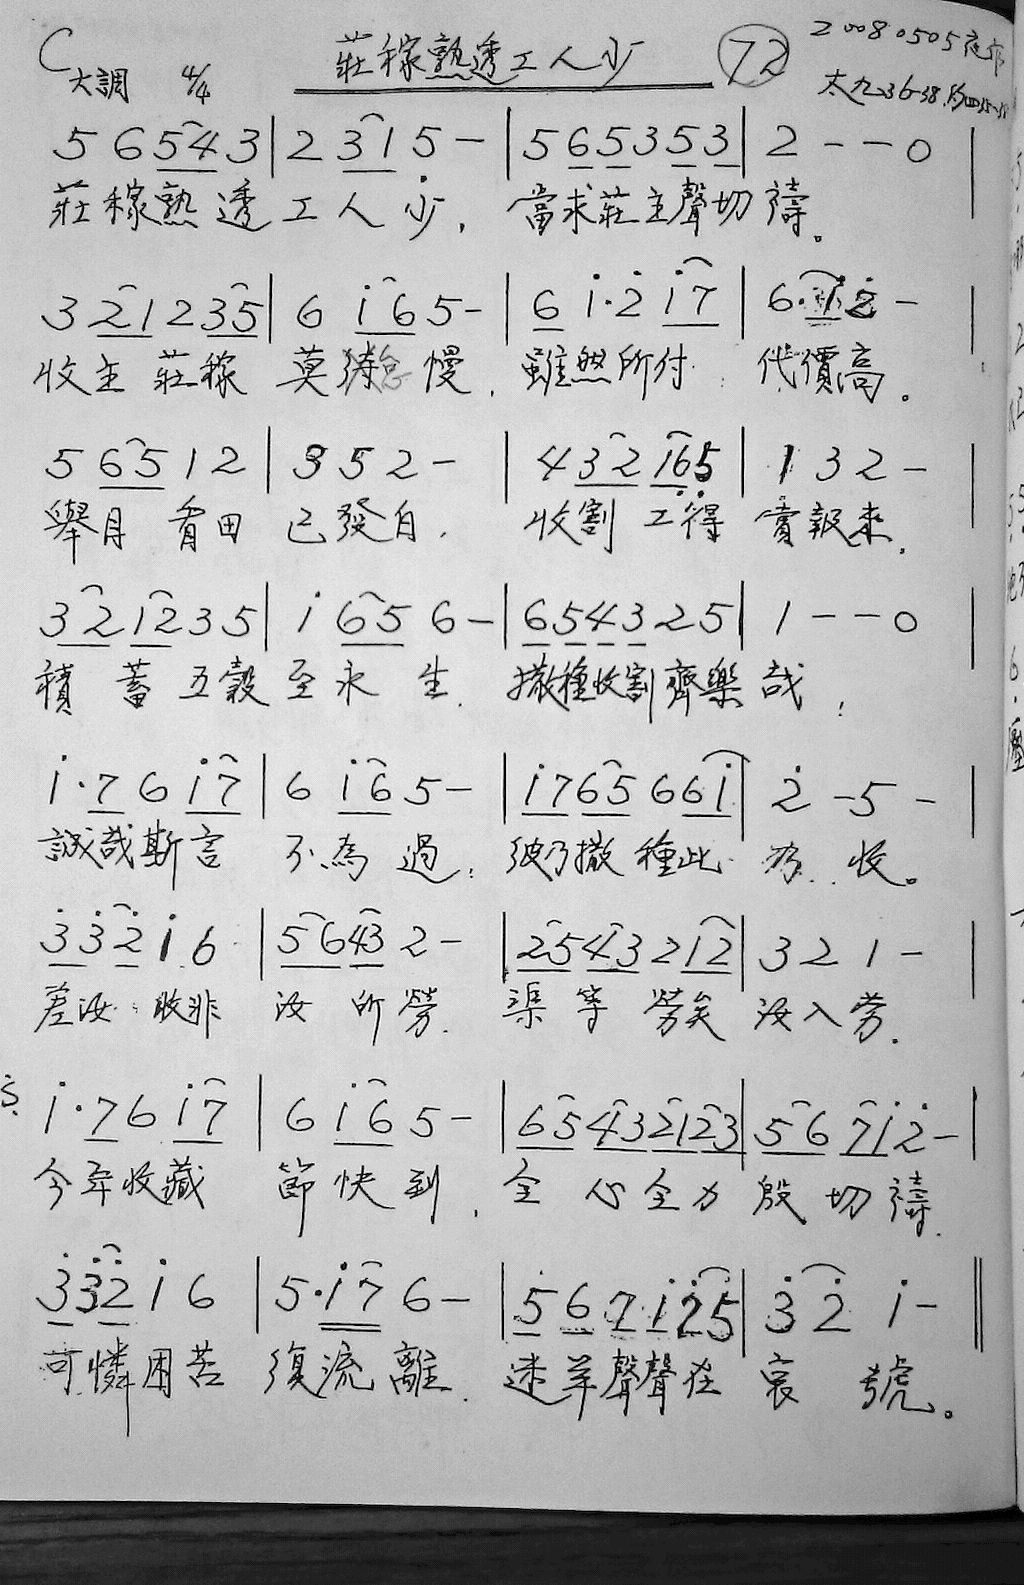 C大調 4/4 莊稼熟透工人少 72 20080505夜作
太九36-38 約四35-38
5 6 5 4 3 | 2 3 1 5 - | 5 6 5 3 5 3 | 2 - - 0 |
莊稼熟透工人少，當求莊主聲切禱。
3 2 1 2 3 5 | 6 i 6 5 - | 6 i · 2 i 7 | 6 · i 2 - |
收主莊稼莫待怠慢，雖然所付代價高。
5 6 5 1 2 | 3 5 2 - | 4 3 2 1 6 5 | 1 3 2 - |
舉目看田已發白．收割工得賞報來．
3 2 1 2 3 5 | i 6 5 6 - | 6 5 4 3 2 5 | 1 - - 0
積蓄五穀至永生．撒種收割齊樂哉．
i · 7 6 i 7 | 6 i 6 5 - | i 7 6 5 6 6 i | 2 - 5 - |
誠哉斯言不為過．彼乃撒種此為收。
3 3 2 i 6 | 5 6 4 3 2 - | 2 5 4 3 2 1 2 | 3 2 1 - |
差汝收非汝所勞．渠等勞矣汝入勞．
i · 7 6 i 7 | 6 i 6 5 - | 6 5 4 3 2 1 2 3 | 5 6 7 i 2 - |
今年收藏節快到，全心全力殷切禱．
3 3 2 i 6 | 5 · i 7 6 - | 5 6 7 i 2 5 | 3 2 i - ||
可憐困苦復流離．迷羊聲聲在哀號。